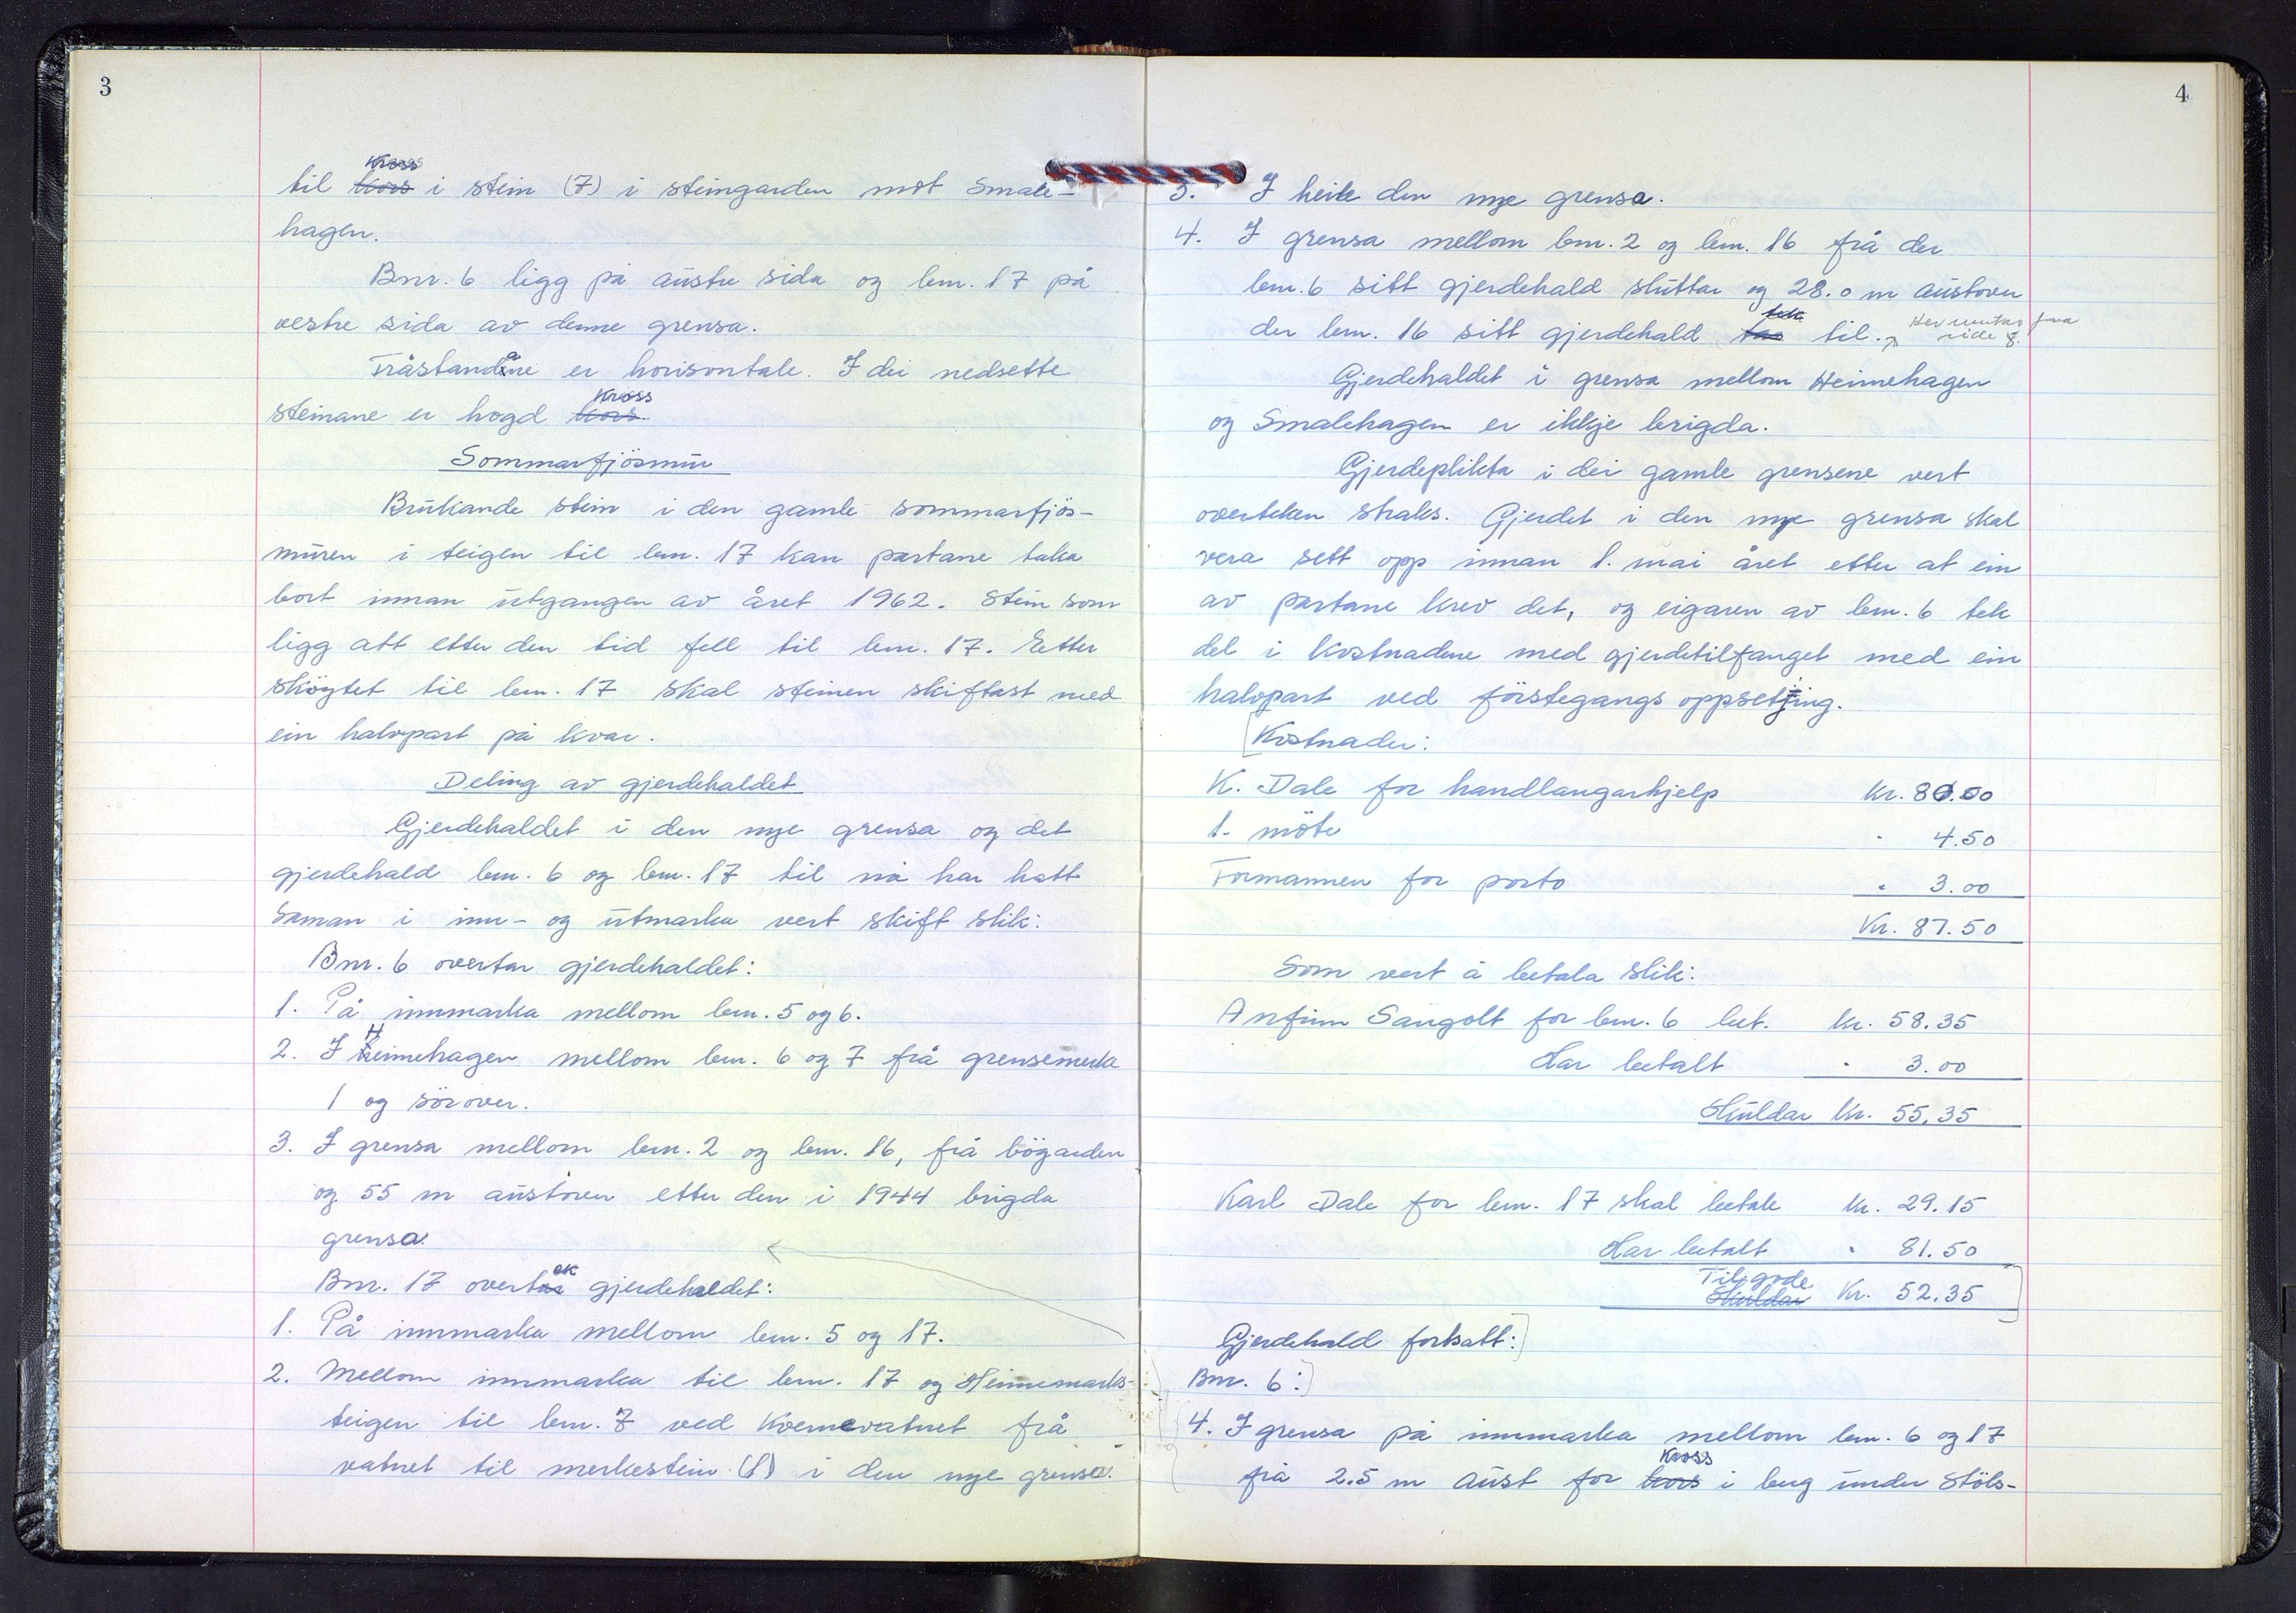 3
til ~~Kors~~ Kross i stein (7) i steingarden mot Smale-
hagen.
Bnr. 6 ligg på austre sida og bnr. 17 på
vestre sida av denne grensa.
Tråstandane er horisontale. I dei nedsette
steinane er hogd ~~kors~~ Kross.
Sommarfjösmur
Brukande stein i den gamle sommarfjös-
muren i teigen til bnr. 17 kan partane taka
bort innan utgangen av året 1962. Stein som
ligg att etter den tid fell til bnr. 17. Etter
skøytet til bnr. 17 skal steinen skiftast med
ein halvpart på kvar.
Deling av gjerdehaldet
Gjerdehaldet i den nye grensa og det
gjerdehald bnr. 6 og bnr. 17 til nå har hatt
saman i inn- og utmarka vert skift slik:
Bnr. 6 overtar gjerdehaldet:
1. På innmarka mellom bnr. 5 og 6.
2. I Heimehagen mellom bnr. 6 og 7 frå grensemerke
1 og sörover.
3. I grensa mellom bnr. 2 og bnr. 16, frå bögarden
og 55 m austover etter den i 1944 brigda
grensa.
Bnr. 17 overt~~ar~~ek gjerdehaldet:
1. På innmarka mellom bnr. 5 og 17.
2. Mellom innmarka til bnr. 17 og Heimemarks-
teigen til bnr. 7 ved Kvernevatnet frå
vatnet til merkestein (1) i den nye grensa.
4
3. I heile den nye grensa.
4. I grensa mellom bnr. 2 og bnr. 16 frå der
bnr. 6 sitt gjerdehald sluttar og 28.0 m austover
der bnr. 16 sitt gjerdehald ~~tar~~ tek til. Her inntas fra side 8.
Gjerdehaldet i grensa mellom Heimehagen
og Smalehagen er ikkje brigda.
Gjerdeplikta i dei gamle grensene vert
overteken straks. Gjerdet i den nye grensa skal
vera sett opp innan 1. mai året etter at ein
av partane krev det, og eigaren av bnr. 6 tek
del i kostnadene med gjerdetilfanget med ein
halvpart ved förstegangs oppsetjing.
[Kostnader:
K. Dale for handlangarhjelp Kr. 80.00
1. möte " 4.50
Formannen for porto " 3.00
Kr. 87.50
Som vert å betala slik:
Anfinn Sangolt for bnr. 6 bet. kr. 58.35
Har betalt " 3.00
Skuldar kr. 55.35
Karl Dale for bnr. 17 skal betale kr. 29.15
Har betalt " 81.50
~~Skuldar~~ Tilgode Kr. 52.35]
Gjerdehald fortsatt:]
Bnr. 6:)
4. I grensa på innmarka mellom bnr. 6 og 17
frå 2.5 m aust for ~~kors~~ Kross i berg under Støls-